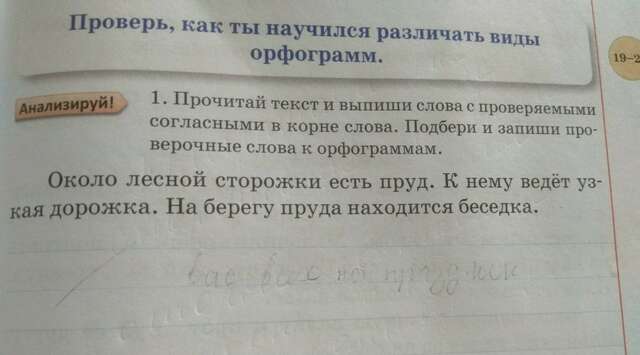 Проверь, как ты научился различать виды
орфограмм.
19–2
Анализируй!
1. Прочитай текст и выпиши слова с проверяемыми
согласными в корне слова. Подбери и запиши про-
верочные слова к орфограммам.
Около лесной сторожки есть пруд. К нему ведёт уз-
кая дорожка. На берегу пруда находится беседка.
вас всех на